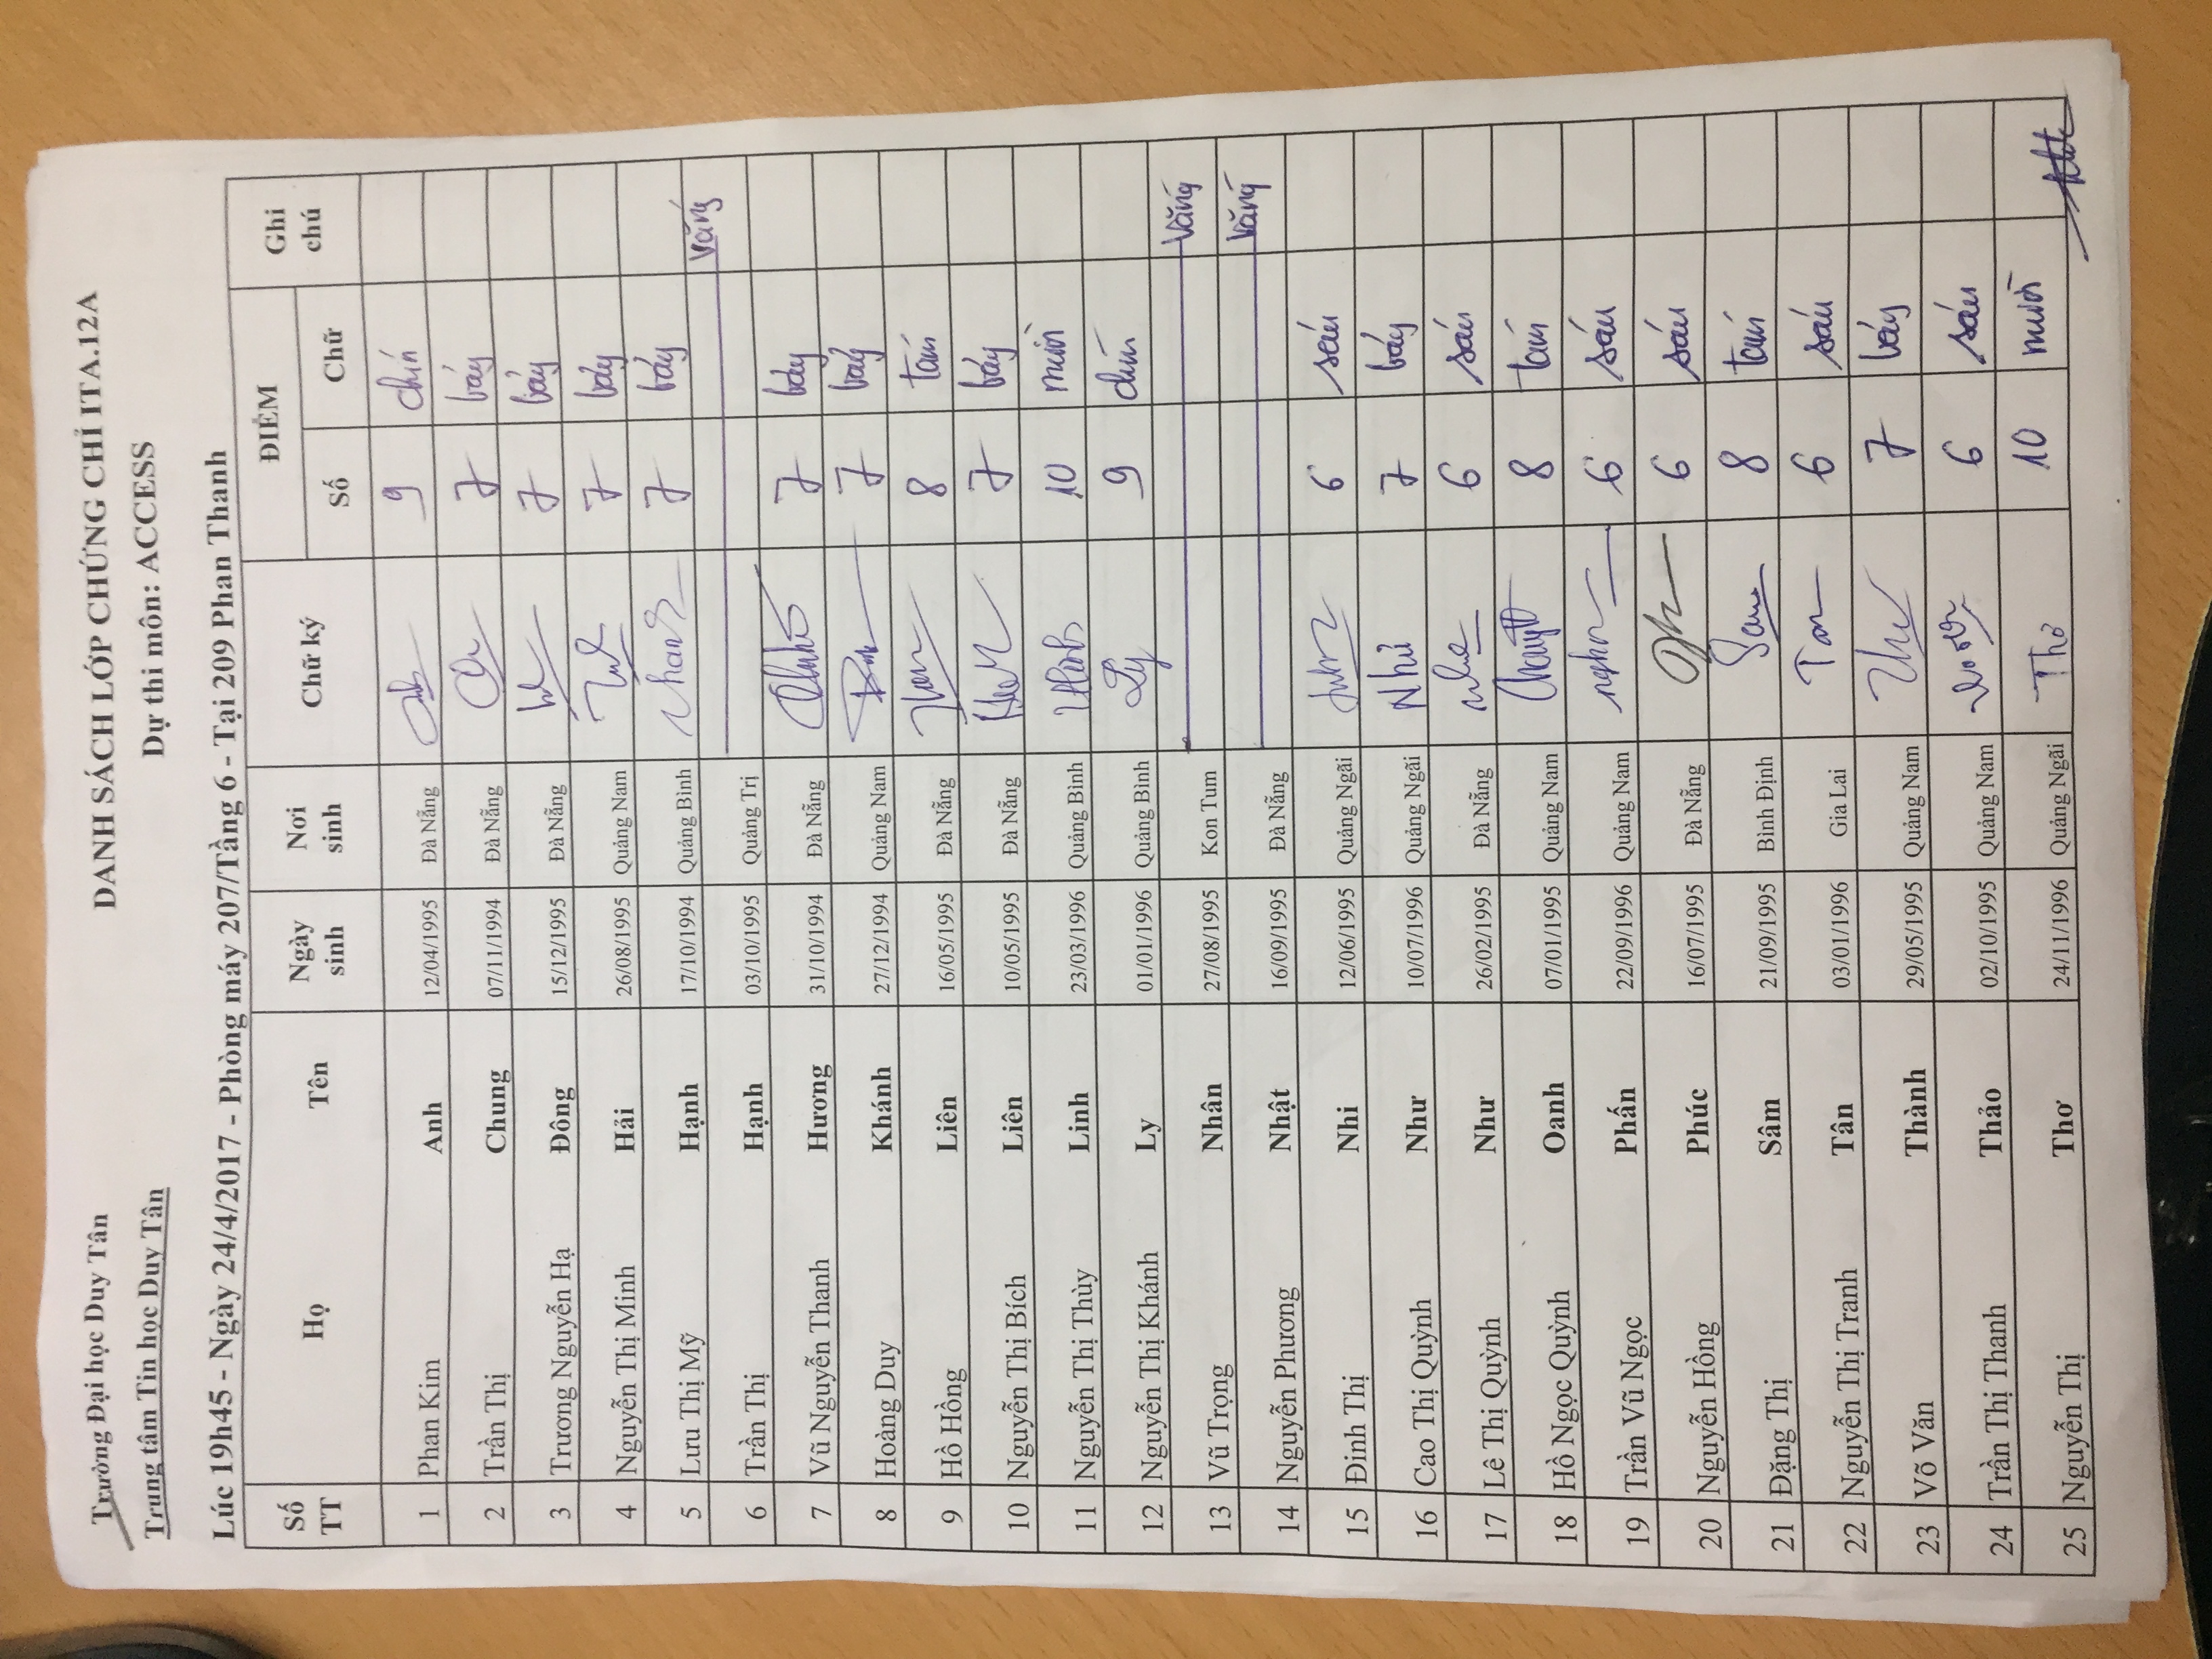 Trường Đại học Duy Tân
DANH SÁCH LỚP CHỨNG CHỈ ITA.12A
Trung tâm Tin học Duy Tân
Dự thi môn: ACCESS
Lúc 19h45 - Ngày 24/4/2017 - Phòng máy 207/Tầng 6 - Tại 209 Phan Thanh
Số TT Họ Tên Ngày sinh Nơi sinh Chữ ký ĐIỂM Ghi chú
Số Chữ
1 Phan Kim Anh 12/04/1995 Đà Nẵng 9 chín
2 Trần Thị Chung 07/11/1994 Đà Nẵng 7 bảy
3 Trương Nguyễn Hạ Đông 15/12/1995 Đà Nẵng 7 bảy
4 Nguyễn Thị Minh Hải 26/08/1995 Quảng Nam 7 bảy
5 Lưu Thị Mỹ Hạnh 17/10/1994 Quảng Bình 7 bảy
6 Trần Thị Hạnh 03/10/1995 Quảng Trị vắng
7 Vũ Nguyễn Thanh Hương 31/10/1994 Đà Nẵng 7 bảy
8 Hoàng Duy Khánh 27/12/1994 Quảng Nam 7 bảy
9 Hồ Hồng Liên 16/05/1995 Đà Nẵng 8 tám
10 Nguyễn Thị Bích Liên 10/05/1995 Đà Nẵng 7 bảy
11 Nguyễn Thị Thùy Linh 23/03/1996 Quảng Bình 10 mười
12 Nguyễn Thị Khánh Ly 01/01/1996 Quảng Bình Ly 9 chín
13 Vũ Trọng Nhân 27/08/1995 Kon Tum vắng
14 Nguyễn Phương Nhật 16/09/1995 Đà Nẵng vắng
15 Đinh Thị Nhi 12/06/1995 Quảng Ngãi 6 sáu
16 Cao Thị Quỳnh Như 10/07/1996 Quảng Ngãi Như 7 bảy
17 Lê Thị Quỳnh Như 26/02/1995 Đà Nẵng 6 sáu
18 Hồ Ngọc Quỳnh Oanh 07/01/1995 Quảng Nam 8 tám
19 Trần Vũ Ngọc Phấn 22/09/1996 Quảng Nam 6 sáu
20 Nguyễn Hồng Phúc 16/07/1995 Đà Nẵng 6 sáu
21 Đặng Thị Sâm 21/09/1995 Bình Định 8 tám
22 Nguyễn Thị Tranh Tân 03/01/1996 Gia Lai 6 sáu
23 Võ Văn Thành 29/05/1995 Quảng Nam 7 bảy
24 Trần Thị Thanh Thảo 02/10/1995 Quảng Nam 6 sáu
25 Nguyễn Thị Thơ 24/11/1996 Quảng Ngãi Thơ 10 mười